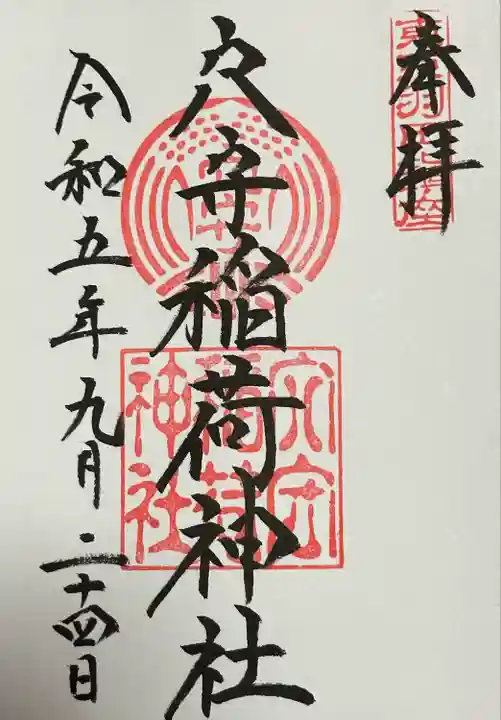 奉拝
穴守稲荷神社
穴守
稲荷
神社
令和五年九月二十四日